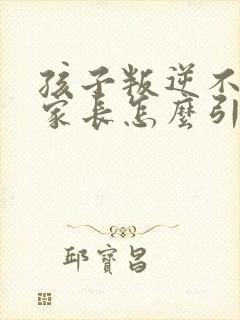 孩子叛逆不
家长怎麼引
邱寶昌